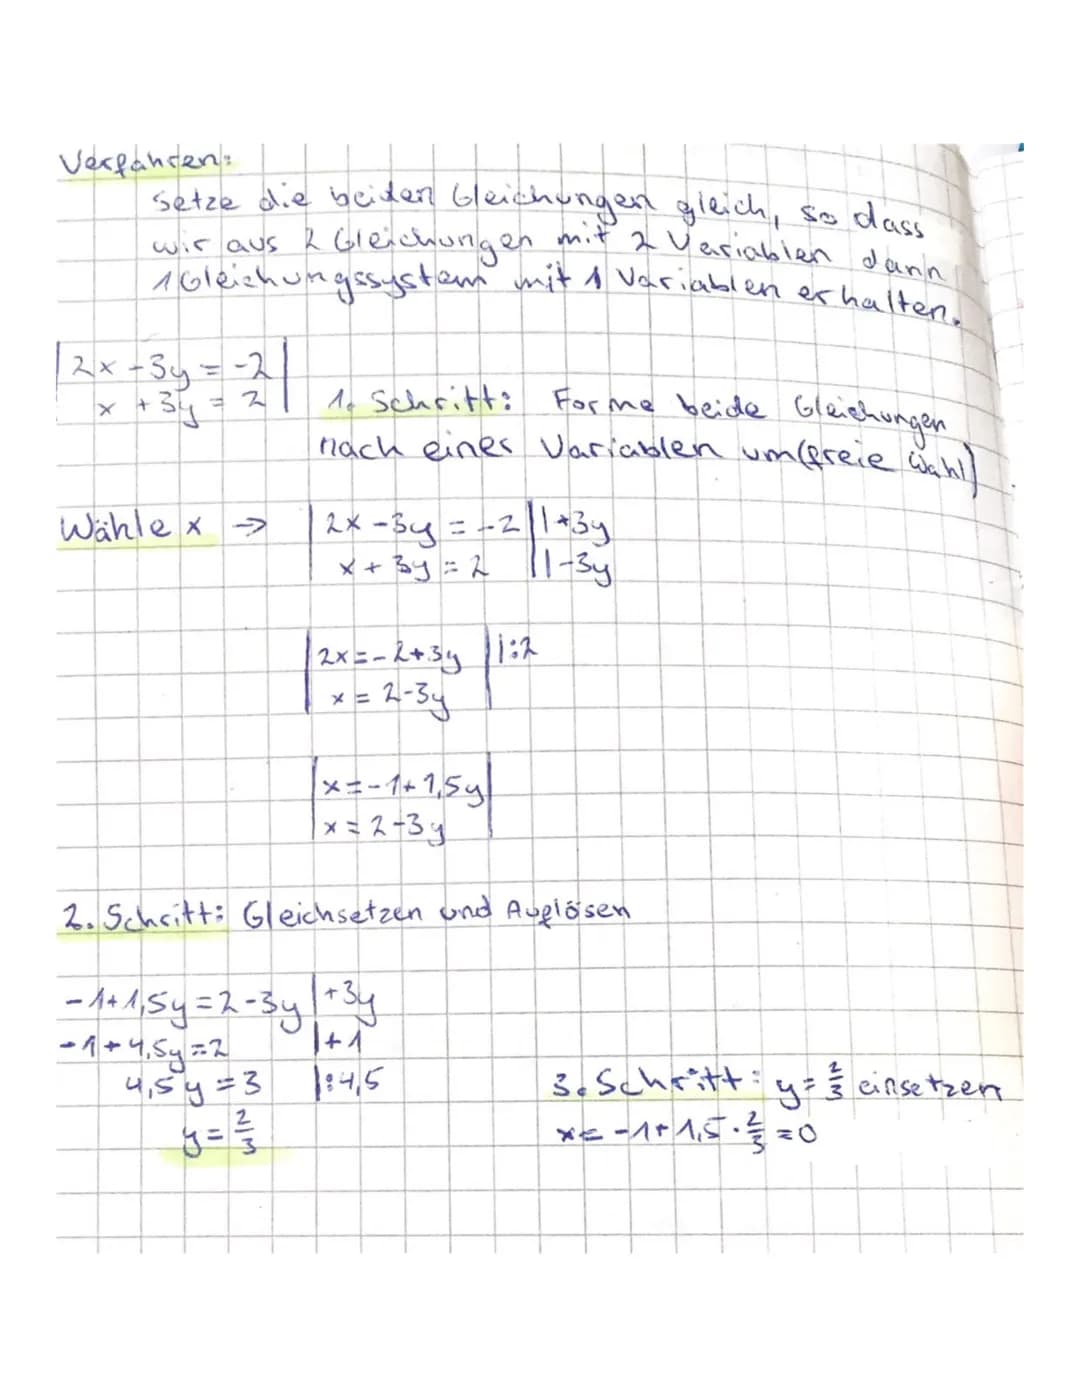 Verfahren:
Setze die beiden Gleichungen gleich, so dass
wir aus 2 Gleichungen mit 2 Variablen dann
1 Gleichungssystem mit 1 Variablen erhalten.
|2x - 3y = -2|
|x + 3y = 2|
1. Schritt: Forme beide Gleichungen
nach einer Variablen um (freie Wahl)
Wähle x → |2x - 3y = -2| |+3y
|x + 3y = 2| |-3y
|2x = -2+3y| |:2
|x = 2-3y|
|x = -1+1,5y|
|x = 2-3y|
2. Schritt: Gleichsetzen und Auflösen
-1+1,5y = 2-3y |+3y
-1+4,5y = 2 |+1
4,5y = 3 |:4,5
y = 2/3
3. Schritt: y = 2/3 einsetzen
x = -1+1,5 · 2/3 = 0